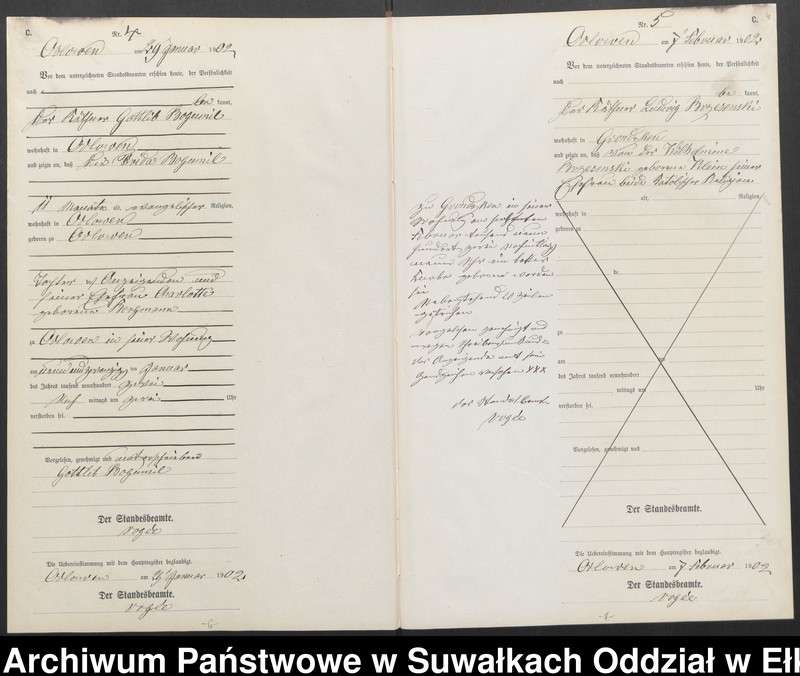 C.
Nr. 4
Orlowen am 29 Januar 1902
Vor dem unterzeichneten Standesbeamten erschien heute, der Persönlichkeit
nach
be kannt,
der Käthner Gottlieb Bogumil
wohnhaft in Orlowen
und zeigte an, daß die Bogumil
11 Monate a. evangelischer Religion,
wohnhaft in Orlowen
geboren zu Orlowen
Tochter des Anzeigenden und
seiner Ehefrau Charlotte
geborene Bergmann
zu Orlowen in seiner Wohnung
am neunundzwanzig ten Januar
des Jahres tausend neunhundert zwei
Nach mittags um zwei Uhr
verstorben sei.
Vorgelesen, genehmigt und unterschrieben
Gottlieb Bogumil
Der Standesbeamte.
Vogée
Die Uebereinstimmung mit dem Hauptregister beglaubigt.
Orlowen am 29 Januar 1902.
Der Standesbeamte.
Vogée
-6-
Nr. 5
C.
Orlowen am 7 Februar 1902
Vor dem unterzeichneten Standesbeamten erschien heute, der Persönlichkeit
nach
be kannt,
der Käthner Ludwig Brzesenski
wohnhaft in Grondzken
und zeigte an, daß von der Wilhelmine
Brzesenski geborene Klein seiner
Ehefrau beide katolischer Religion
alt, Religion,
wohnhaft in
geboren zu
be
zu
am ten
des Jahres tausend neunhundert
mittags um Uhr
verstorben sei.
Vorgelesen, genehmigt und
zu Grondzken in seiner
Wohnung am
Februar tausend neun
hundert zwei Vormittag
neun Uhr ein todter
Knabe geboren worden
sei
Nebenstehend Zeilen
gestrichen
Vorgelesen genehmigt und
wegen Schreibensunkunde
des Anzeigende mit sein
Handzeichen versehen XXX
der Standesbeamte
Vogée
Der Standesbeamte.
Die Uebereinstimmung mit dem Hauptregister beglaubigt.
Orlowen am 7 Februar 1902
Der Standesbeamte.
Vogée
Archiwum Państwowe w Suwałkach Oddział w Ełk